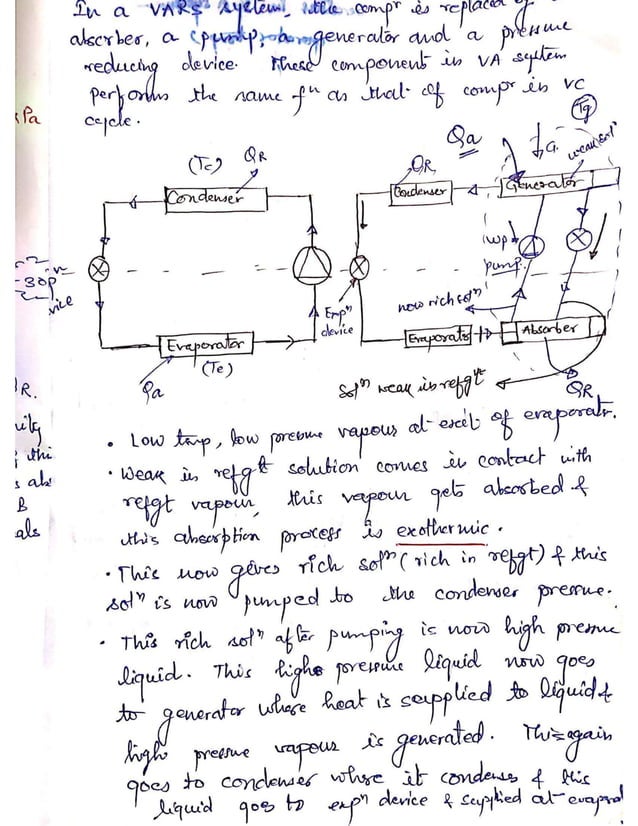 In a VARS system, the compr is replaced
absorber, a pump, a generator and a pressure
reducing device. These component in VA system
performs the same fn as that of compr in VC
cycle.
Pa
Tg
Qa
G.
weak soln
(Tc)
QR
QR
Condenser
Condenser
Generator
Wp
pump.
30P
vice
now rich soln
Expn
device
Evaporator
(Te)
Qa
Evaporator
Absorber
Soln weak in refgt
QR
R.
• Low temp, low pressure vapour at exit of evaporatr.
• Weak in refgt solution comes in contact with
refgt vapour, this vapour gets absorbed &
this absorption process is exothermic.
• This now gives rich soln (rich in refgt) & this
soln is now pumped to the condenser pressure.
• This rich soln after pumping is now high pressure
liquid. This high pressure liquid now goes
to generator where heat is supplied to liquid &
high pressure vapour is generated. This again
goes to condenser where it condenses & this
liquid goes to expn device & supplied at evaporat